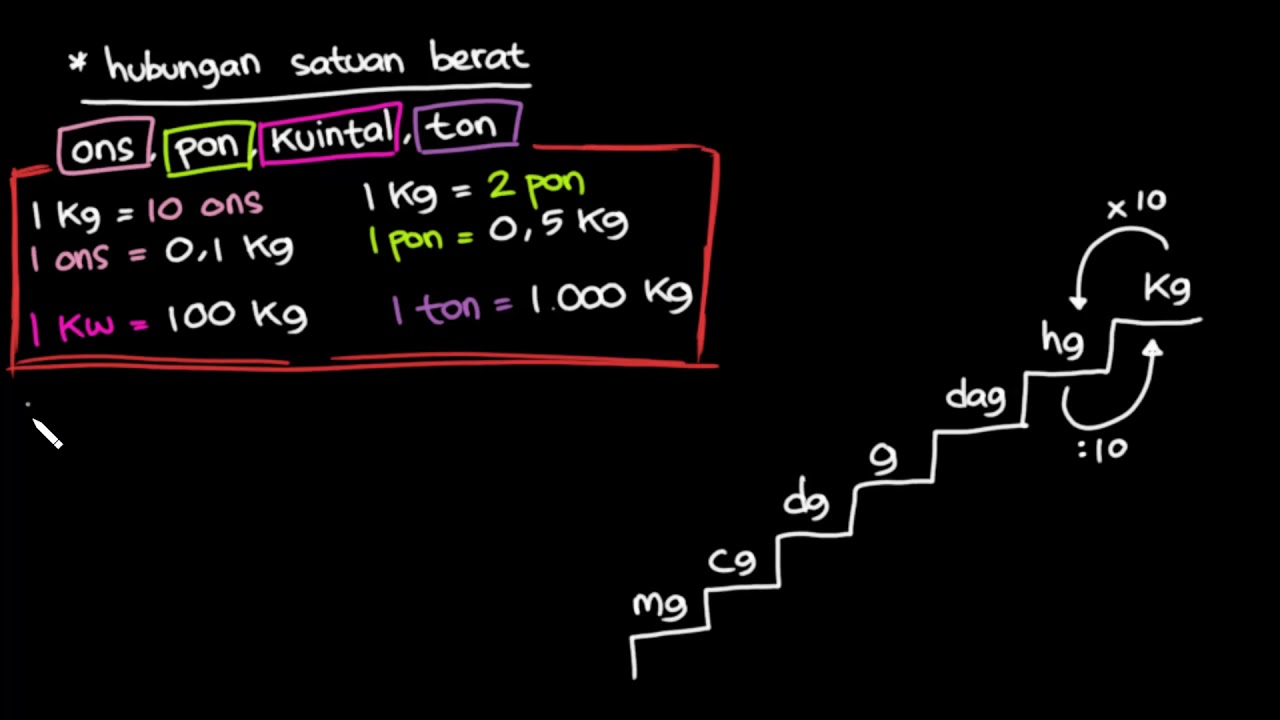 * hubungan satuan berat
ons, pon, Kuintal, ton
1 Kg = 10 ons
1 ons = 0,1 Kg
1 Kg = 2 pon
1 pon = 0,5 Kg
1 Kw = 100 Kg
1 ton = 1.000 Kg
x10
Kg
hg
dag
:10
g
dg
cg
mg